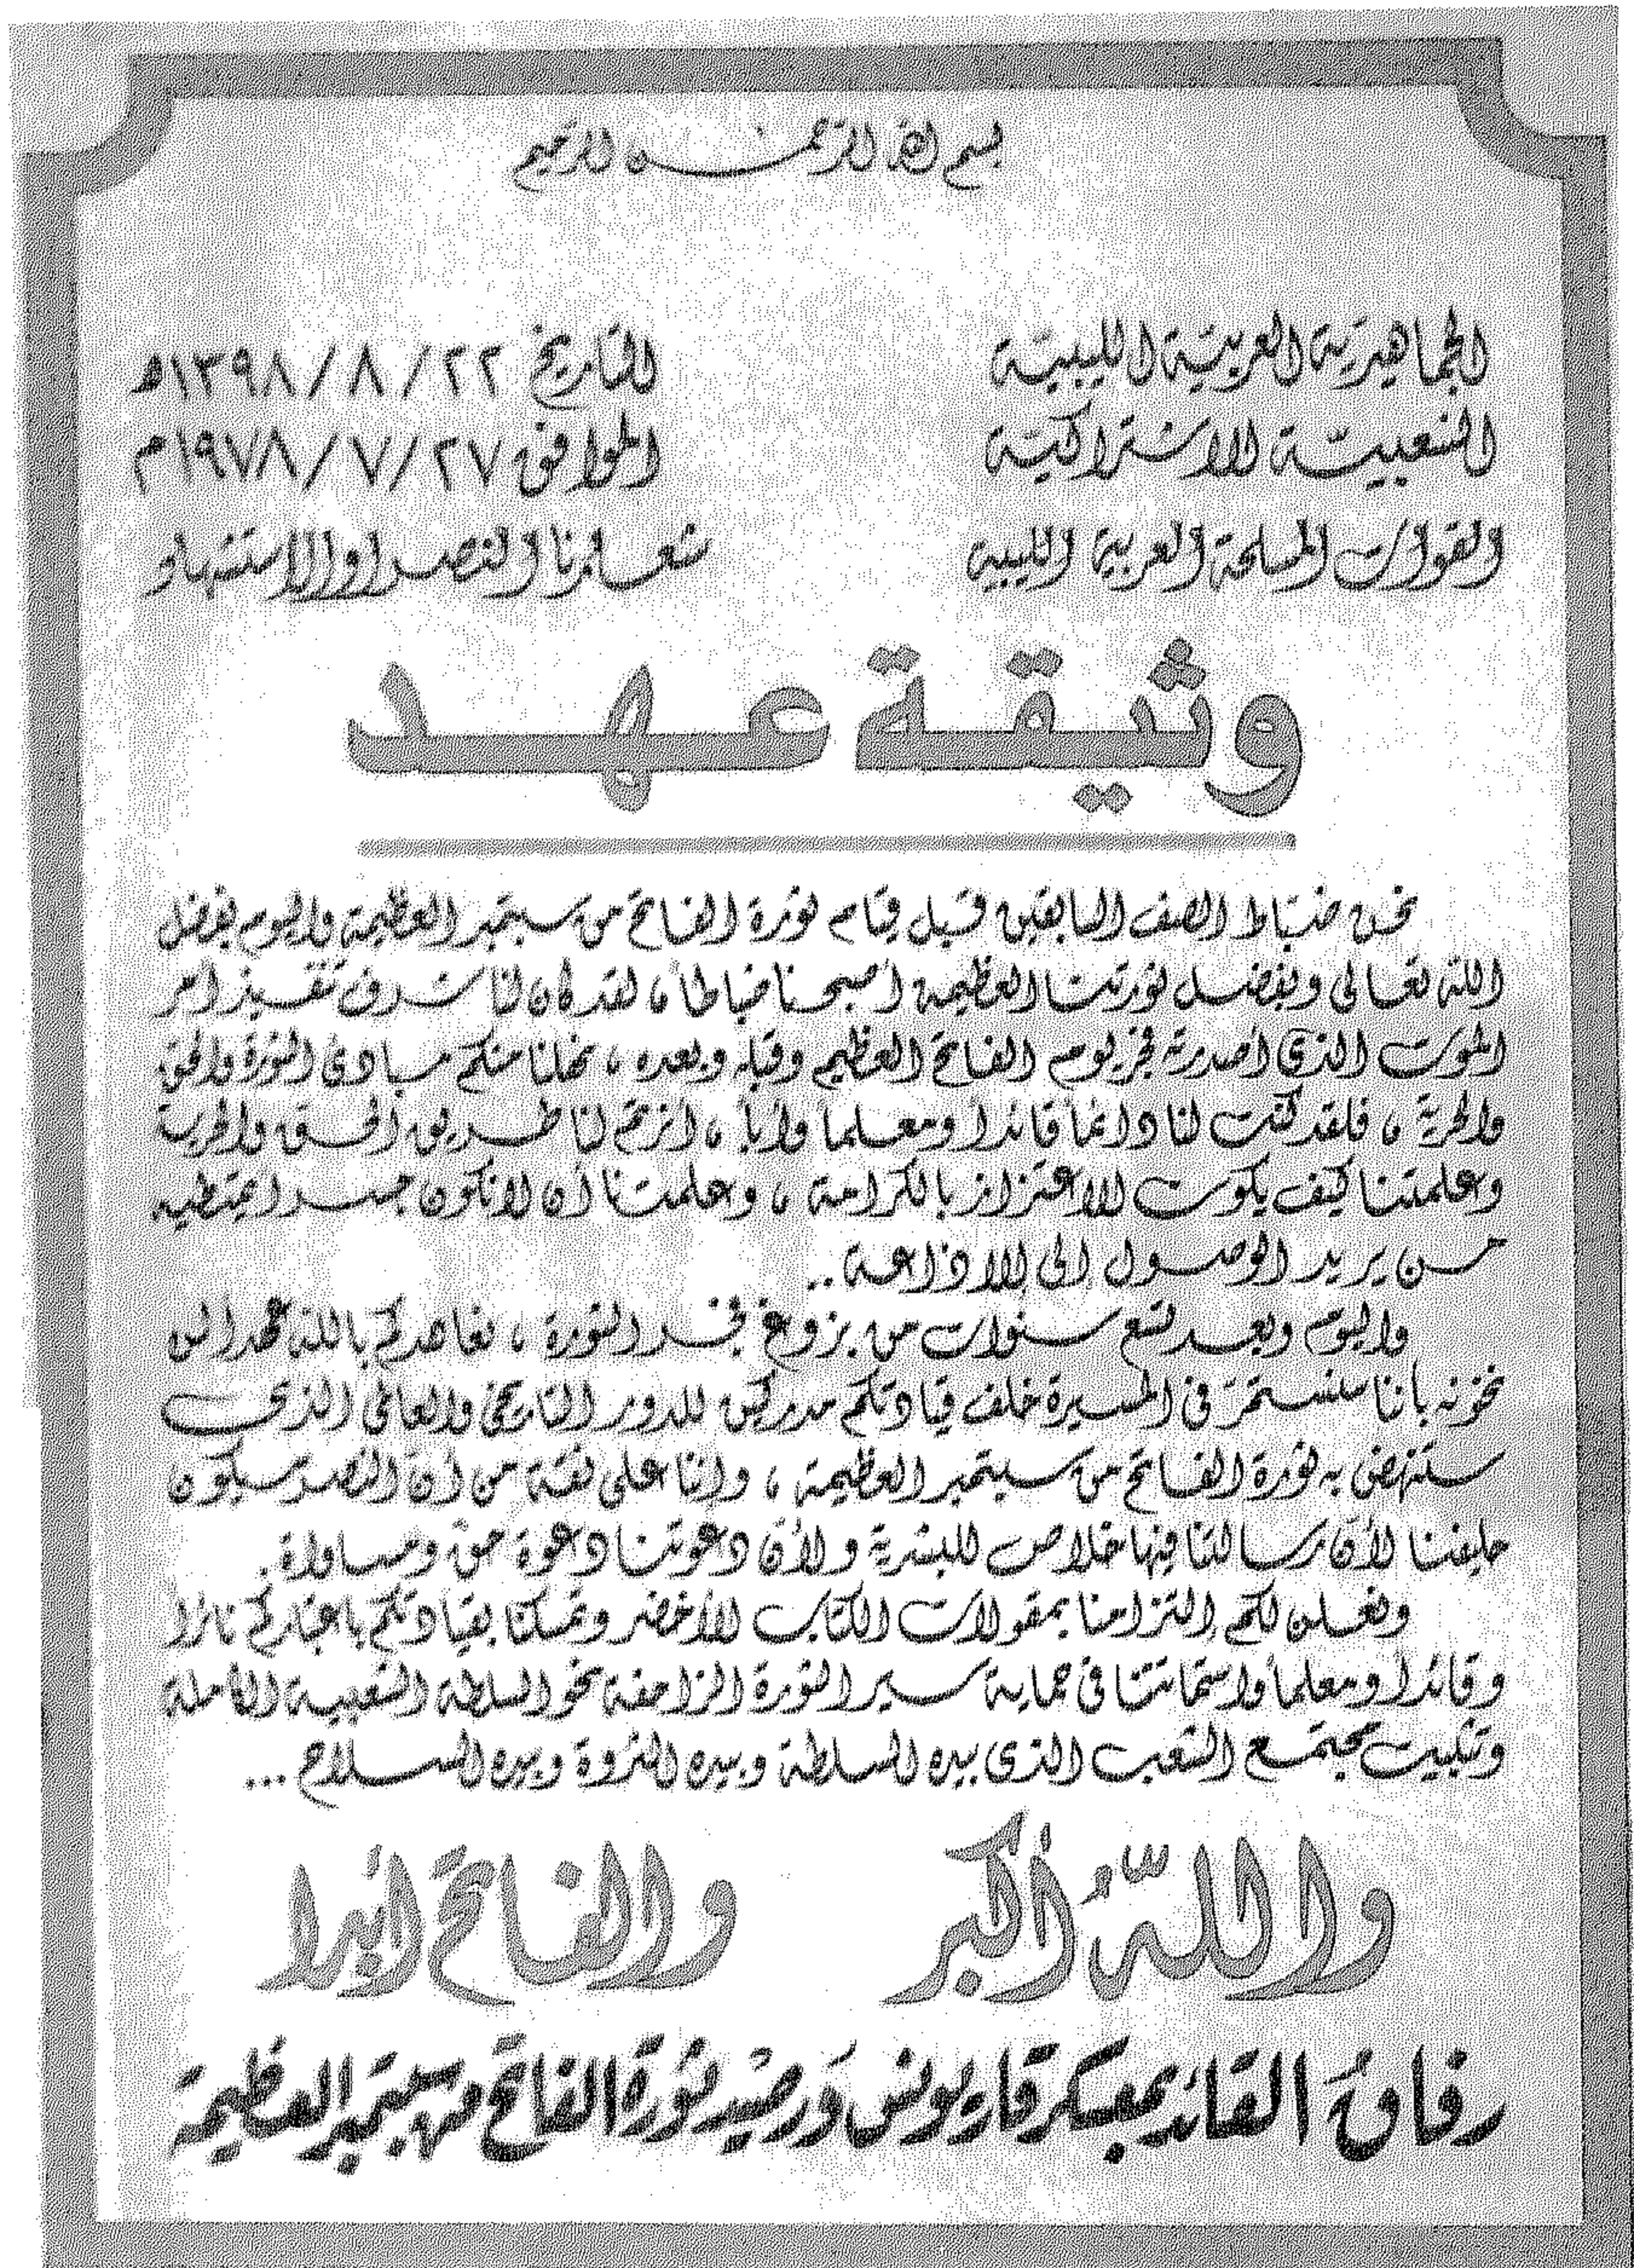 بسم الله الرحمن الرحيم
الجماهيرية العربية الليبية
الشعبية الاشتراكية
القوات المسلحة العربية الليبية
التاريخ ٢٢ / ٨ / ١٣٩٨ه
الموافق ٢٧ / ٧ / ١٩٧٨م
شعارنا النصر او الاستشهاد
وثيقة عهد
نحن ضباط الصف السابقين قبل قيام ثورة الفاتح من سبتمبر العظيمة واليوم بفضل
الله تعالى وبفضل ثورتنا العظيمة أصبحنا ضباطاً ، لقد كان لنا شرف تنفيذ أمر
الموت الذي أصدرته فجر يوم الفاتح العظيم وقبله وبعده ، نهلنا منكم مبادئ الثورة والحق
والحرية ، فلقد كنت لنا دائماً قائداً ومعلماً وأباً ، أنرتم لنا طريق الحق والحرية
وعلمتنا كيف يكون الاعتزاز بالكرامة ، وعلمتنا أن لا نكون جسراً يمتطيه
من يريد الوصول الى الاذاعة ..
واليوم وبعد تسع سنوات من بزوغ فجر الثورة ، نعاهدكم بالله عهدا لن
نخونه باننا سنستمر في المسيرة خلف قيادتكم مدركين للدور التاريخي والعالمي الذي
ستنهض به ثورة الفاتح من سبتمبر العظيمة ، وإننا على ثقة من أن النصر سيكون
حليفنا لأن رسالتنا فيها خلاص للبشرية ولأن دعوتنا دعوة حق ومساواة .
ونعلن لكم إلتزامنا بمقولات الكتاب الأخضر وتمسكنا بقيادتكم باعتباركم ثائرا
وقائداً ومعلماً واستماتتنا في حماية سير الثورة الزاحفة نحو السلطة الشعبية الكاملة
وتثبيت مجتمع الشعب الذي بيده السلطة وبيده الثروة وبيده السلاح ...
والله أكبر والفاتح أبدا
رفاق القائد بمعسكر قاريونس ورصيد ثورة الفاتح من سبتمبر العظيمة